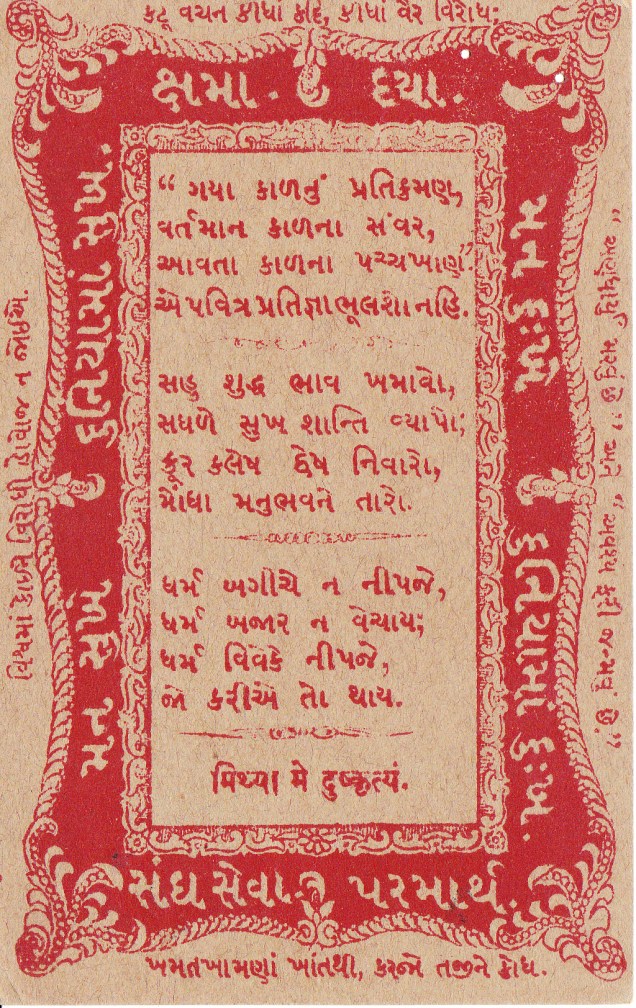 કટૂ વચન કીધાં કદિ, કીધાં વૈર વિરોધ;
ક્ષમા. દયા.
“ ગયા કાળનું પ્રતિક્રમણ,
વર્તમાન કાળના સંવર,
આવતા કાળના પચ્ચખાણ”
એ પવિત્ર પ્રતિજ્ઞા ભૂલશો નહિ.
સહુ શુદ્ધ ભાવ ખમાવો,
સઘળે સુખ શાન્તિ વ્યાપો;
ક્રૂર કલેષ દ્વેષ નિવારો,
મોંઘા મનુભવને તારો.
ધર્મ બગીચે ન નીપજે,
ધર્મ બજાર ન વેચાય;
ધર્મ વિવેકે નીપજે,
જો કરીએ તો થાય.
મિથ્યા મે દુષ્કૃત્યં.
મન સુખે દુનિયામાં સુખ.
મન દુઃખે દુનિયામાં દુઃખ.
સંઘ સેવા. પરમાર્થ.
વિશ્વમાં કોઈને વિરોધી હોવોજ ન જોઈએ.
મરવું છે ” અને “ અવશ્ય ફરી જન્મવું છે. ”
ખમતખામણાં ખાંતથી, કરજો તજીને ક્રોધ.